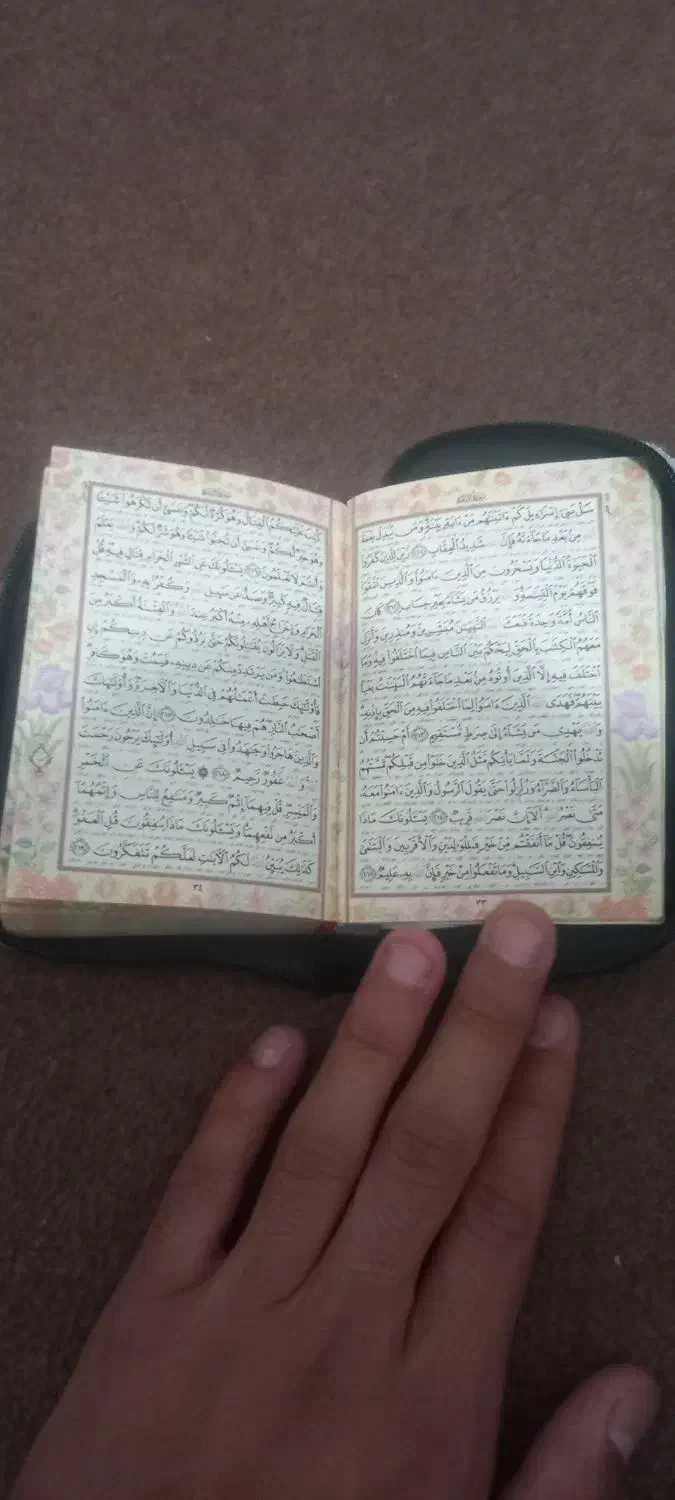 سُورَةُ البَقَرَةِ
سَلْ بَنِىٓ إِسْرَٰٓءِيلَ كَمْ ءَاتَيْنَٰهُم مِّنْ ءَايَةٍۭ بَيِّنَةٍ وَمَن يُبَدِّلْ نِعْمَةَ
مِنۢ بَعْدِ مَا جَآءَتْهُ فَإِنَّ شَدِيدُ ٱلْعِقَابِ ﴿٢١١﴾ زُيِّنَ لِلَّذِينَ كَفَرُوا۟
ٱلْحَيَوٰةُ ٱلدُّنْيَا وَيَسْخَرُونَ مِنَ ٱلَّذِينَ ءَامَنُوا۟ وَٱلَّذِينَ ٱتَّقَوْا۟
فَوْقَهُمْ يَوْمَ ٱلْقِيَٰمَةِ وَ يَرْزُقُ مَن يَشَآءُ بِغَيْرِ حِسَابٍ ﴿٢١٢﴾ كَانَ
ٱلنَّاسُ أُمَّةً وَٰحِدَةً فَبَعَثَ ٱلنَّبِيِّـۧنَ مُبَشِّرِينَ وَمُنذِرِينَ وَأَنزَلَ
مَعَهُمُ ٱلْكِتَٰبَ بِٱلْحَقِّ لِيَحْكُمَ بَيْنَ ٱلنَّاسِ فِيمَا ٱخْتَلَفُوا۟ فِيهِ وَمَا
ٱخْتَلَفَ فِيهِ إِلَّا ٱلَّذِينَ أُوتُوهُ مِنۢ بَعْدِ مَا جَآءَتْهُمُ ٱلْبَيِّنَٰتُ بَغْيًۢا
بَيْنَهُمْ فَهَدَى ٱلَّذِينَ ءَامَنُوا۟ لِمَا ٱخْتَلَفُوا۟ فِيهِ مِنَ ٱلْحَقِّ بِإِذْنِهِۦ
وَ يَهْدِى مَن يَشَآءُ إِلَىٰ صِرَٰطٍ مُّسْتَقِيمٍ ﴿٢١٣﴾ أَمْ حَسِبْتُمْ أَن
تَدْخُلُوا۟ ٱلْجَنَّةَ وَلَمَّا يَأْتِكُم مَّثَلُ ٱلَّذِينَ خَلَوْا۟ مِن قَبْلِكُم مَّسَّتْهُمُ
ٱلْبَأْسَآءُ وَٱلضَّرَّآءُ وَزُلْزِلُوا۟ حَتَّىٰ يَقُولَ ٱلرَّسُولُ وَٱلَّذِينَ ءَامَنُوا۟ مَعَهُۥ
مَتَىٰ نَصْرُ أَلَآ إِنَّ نَصْرَ قَرِيبٌ ﴿٢١٤﴾ يَسْـَٔلُونَكَ مَاذَا
يُنفِقُونَ قُلْ مَآ أَنفَقْتُم مِّنْ خَيْرٍ فَلِلْوَٰلِدَيْنِ وَٱلْأَقْرَبِينَ وَٱلْيَتَٰمَىٰ
وَٱلْمَسَٰكِينِ وَٱبْنِ ٱلسَّبِيلِ وَمَا تَفْعَلُوا۟ مِنْ خَيْرٍ فَإِنَّ بِهِۦ عَلِيمٌ ﴿٢١٥﴾
٣٣
سُورَةُ البَقَرَةِ
كُتِبَ عَلَيْكُمُ ٱلْقِتَالُ وَهُوَ كُرْهٌ لَّكُمْ وَعَسَىٰٓ أَن تَكْرَهُوا۟ شَيْـًٔا
وَهُوَ خَيْرٌ لَّكُمْ وَعَسَىٰٓ أَن تُحِبُّوا۟ شَيْـًٔا وَهُوَ شَرٌّ لَّكُمْ وَ يَعْلَمُ
وَأَنتُمْ لَا تَعْلَمُونَ ﴿٢١٦﴾ يَسْـَٔلُونَكَ عَنِ ٱلشَّهْرِ ٱلْحَرَامِ قِتَالٍ فِيهِ قُلْ
قِتَالٌ فِيهِ كَبِيرٌ وَصَدٌّ عَن سَبِيلِ وَكُفْرٌۢ بِهِۦ وَٱلْمَسْجِدِ
ٱلْحَرَامِ وَإِخْرَاجُ أَهْلِهِۦ مِنْهُ أَكْبَرُ عِندَ وَٱلْفِتْنَةُ أَكْبَرُ مِنَ
ٱلْقَتْلِ وَلَا يَزَالُونَ يُقَٰتِلُونَكُمْ حَتَّىٰ يَرُدُّوكُمْ عَن دِينِكُمْ إِنِ
ٱسْتَطَٰعُوا۟ وَمَن يَرْتَدِدْ مِنكُمْ عَن دِينِهِۦ فَيَمُتْ وَهُوَ كَافِرٌ
فَأُو۟لَٰٓئِكَ حَبِطَتْ أَعْمَٰلُهُمْ فِى ٱلدُّنْيَا وَٱلْـَٔاخِرَةِ وَأُو۟لَٰٓئِكَ
أَصْحَٰبُ ٱلنَّارِ هُمْ فِيهَا خَٰلِدُونَ ﴿٢١٧﴾ إِنَّ ٱلَّذِينَ ءَامَنُوا۟
وَٱلَّذِينَ هَاجَرُوا۟ وَجَٰهَدُوا۟ فِى سَبِيلِ أُو۟لَٰٓئِكَ يَرْجُونَ رَحْمَتَ
وَ غَفُورٌ رَّحِيمٌ ﴿٢١٨﴾ ۞ يَسْـَٔلُونَكَ عَنِ ٱلْخَمْرِ
وَٱلْمَيْسِرِ قُلْ فِيهِمَآ إِثْمٌ كَبِيرٌ وَمَنَٰفِعُ لِلنَّاسِ وَإِثْمُهُمَآ
أَكْبَرُ مِن نَّفْعِهِمَا وَيَسْـَٔلُونَكَ مَاذَا يُنفِقُونَ قُلِ ٱلْعَفْوَ
كَذَٰلِكَ يُبَيِّنُ لَكُمُ ٱلْـَٔايَٰتِ لَعَلَّكُمْ تَتَفَكَّرُونَ ﴿٢١٩﴾
٣٤